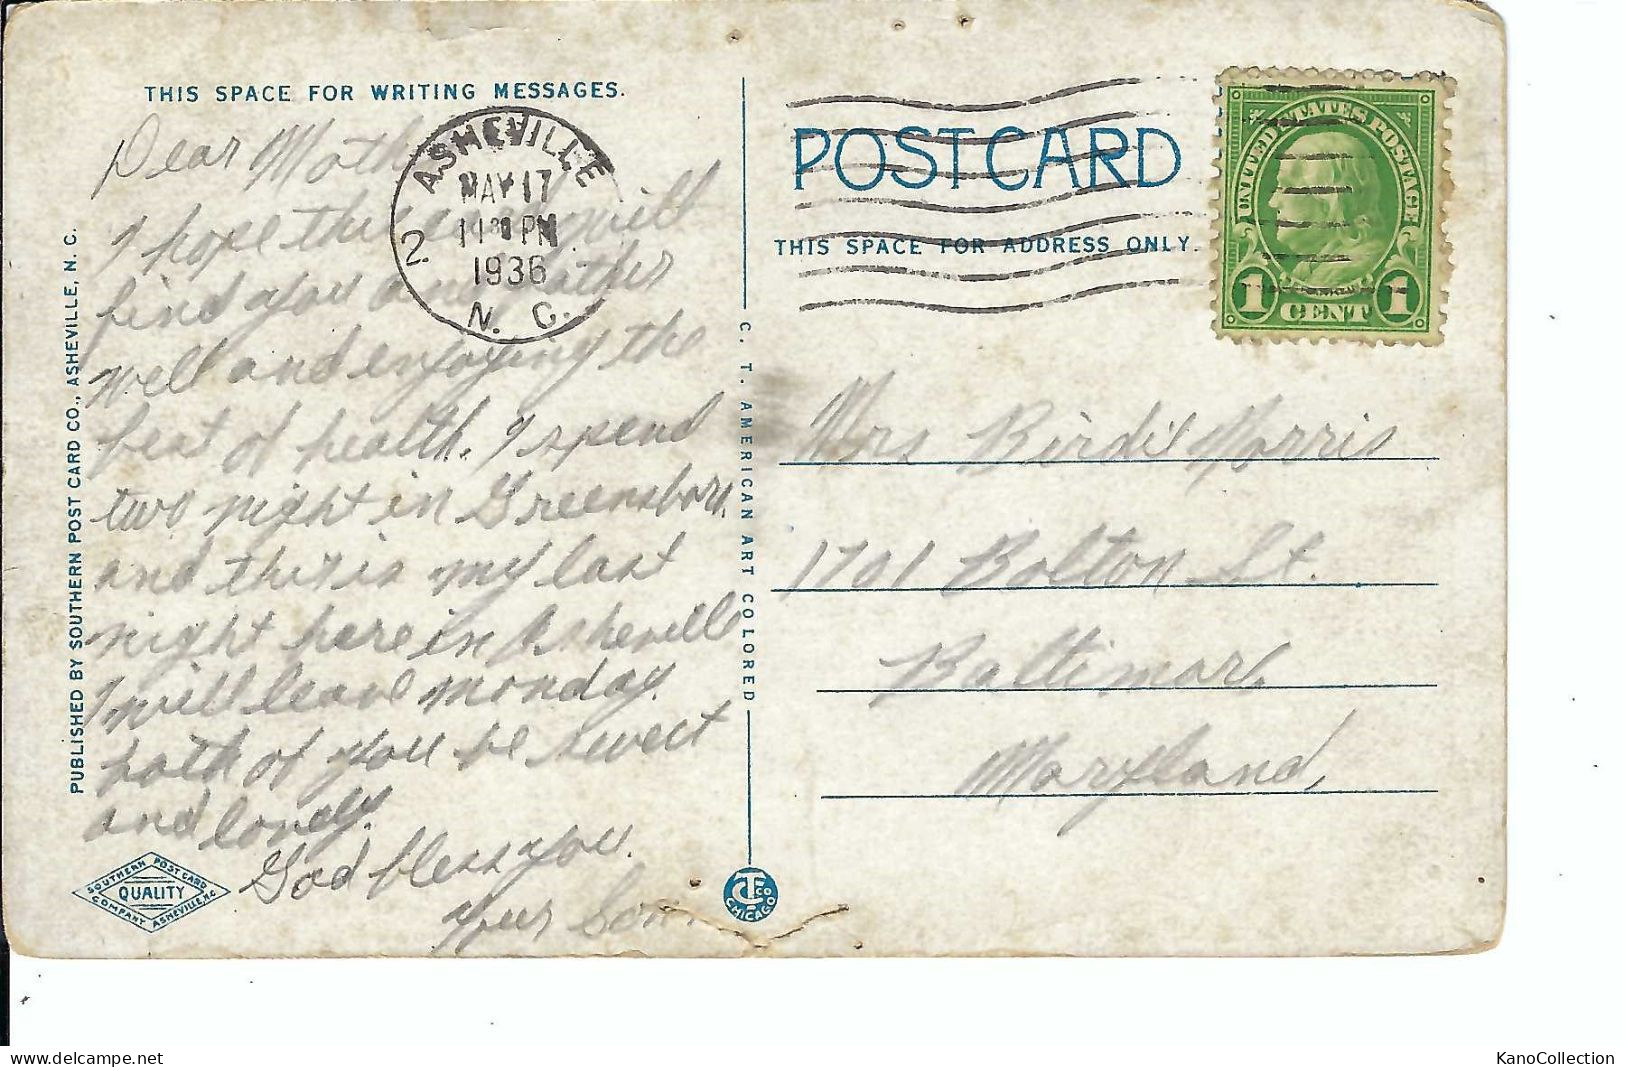 THIS SPACE FOR WRITING MESSAGES.
Dear Moth
I hope this will
find you and Father
well and enjoying the
best of health. I spend
two night in Greensboro.
and this is my last
night here in Asheville
I will leave monday.
both of you be sweet
and lovely.
God bless you.
your Son
ASHEVILLE
MAY 17
11 30 PM
1936
N. C.
2
PUBLISHED BY SOUTHERN POST CARD CO., ASHEVILLE, N. C.
SOUTHERN POST CARD
QUALITY
COMPANY ASHEVILLE N.C.
C. T. AMERICAN ART COLORED
CT CO
CHICAGO
POST CARD
THIS SPACE FOR ADDRESS ONLY.
UNITED STATES POSTAGE
1 CENT 1
Mrs Birdie Norris
1701 Bolton St.
Baltimore,
Maryland,
KanoCollection